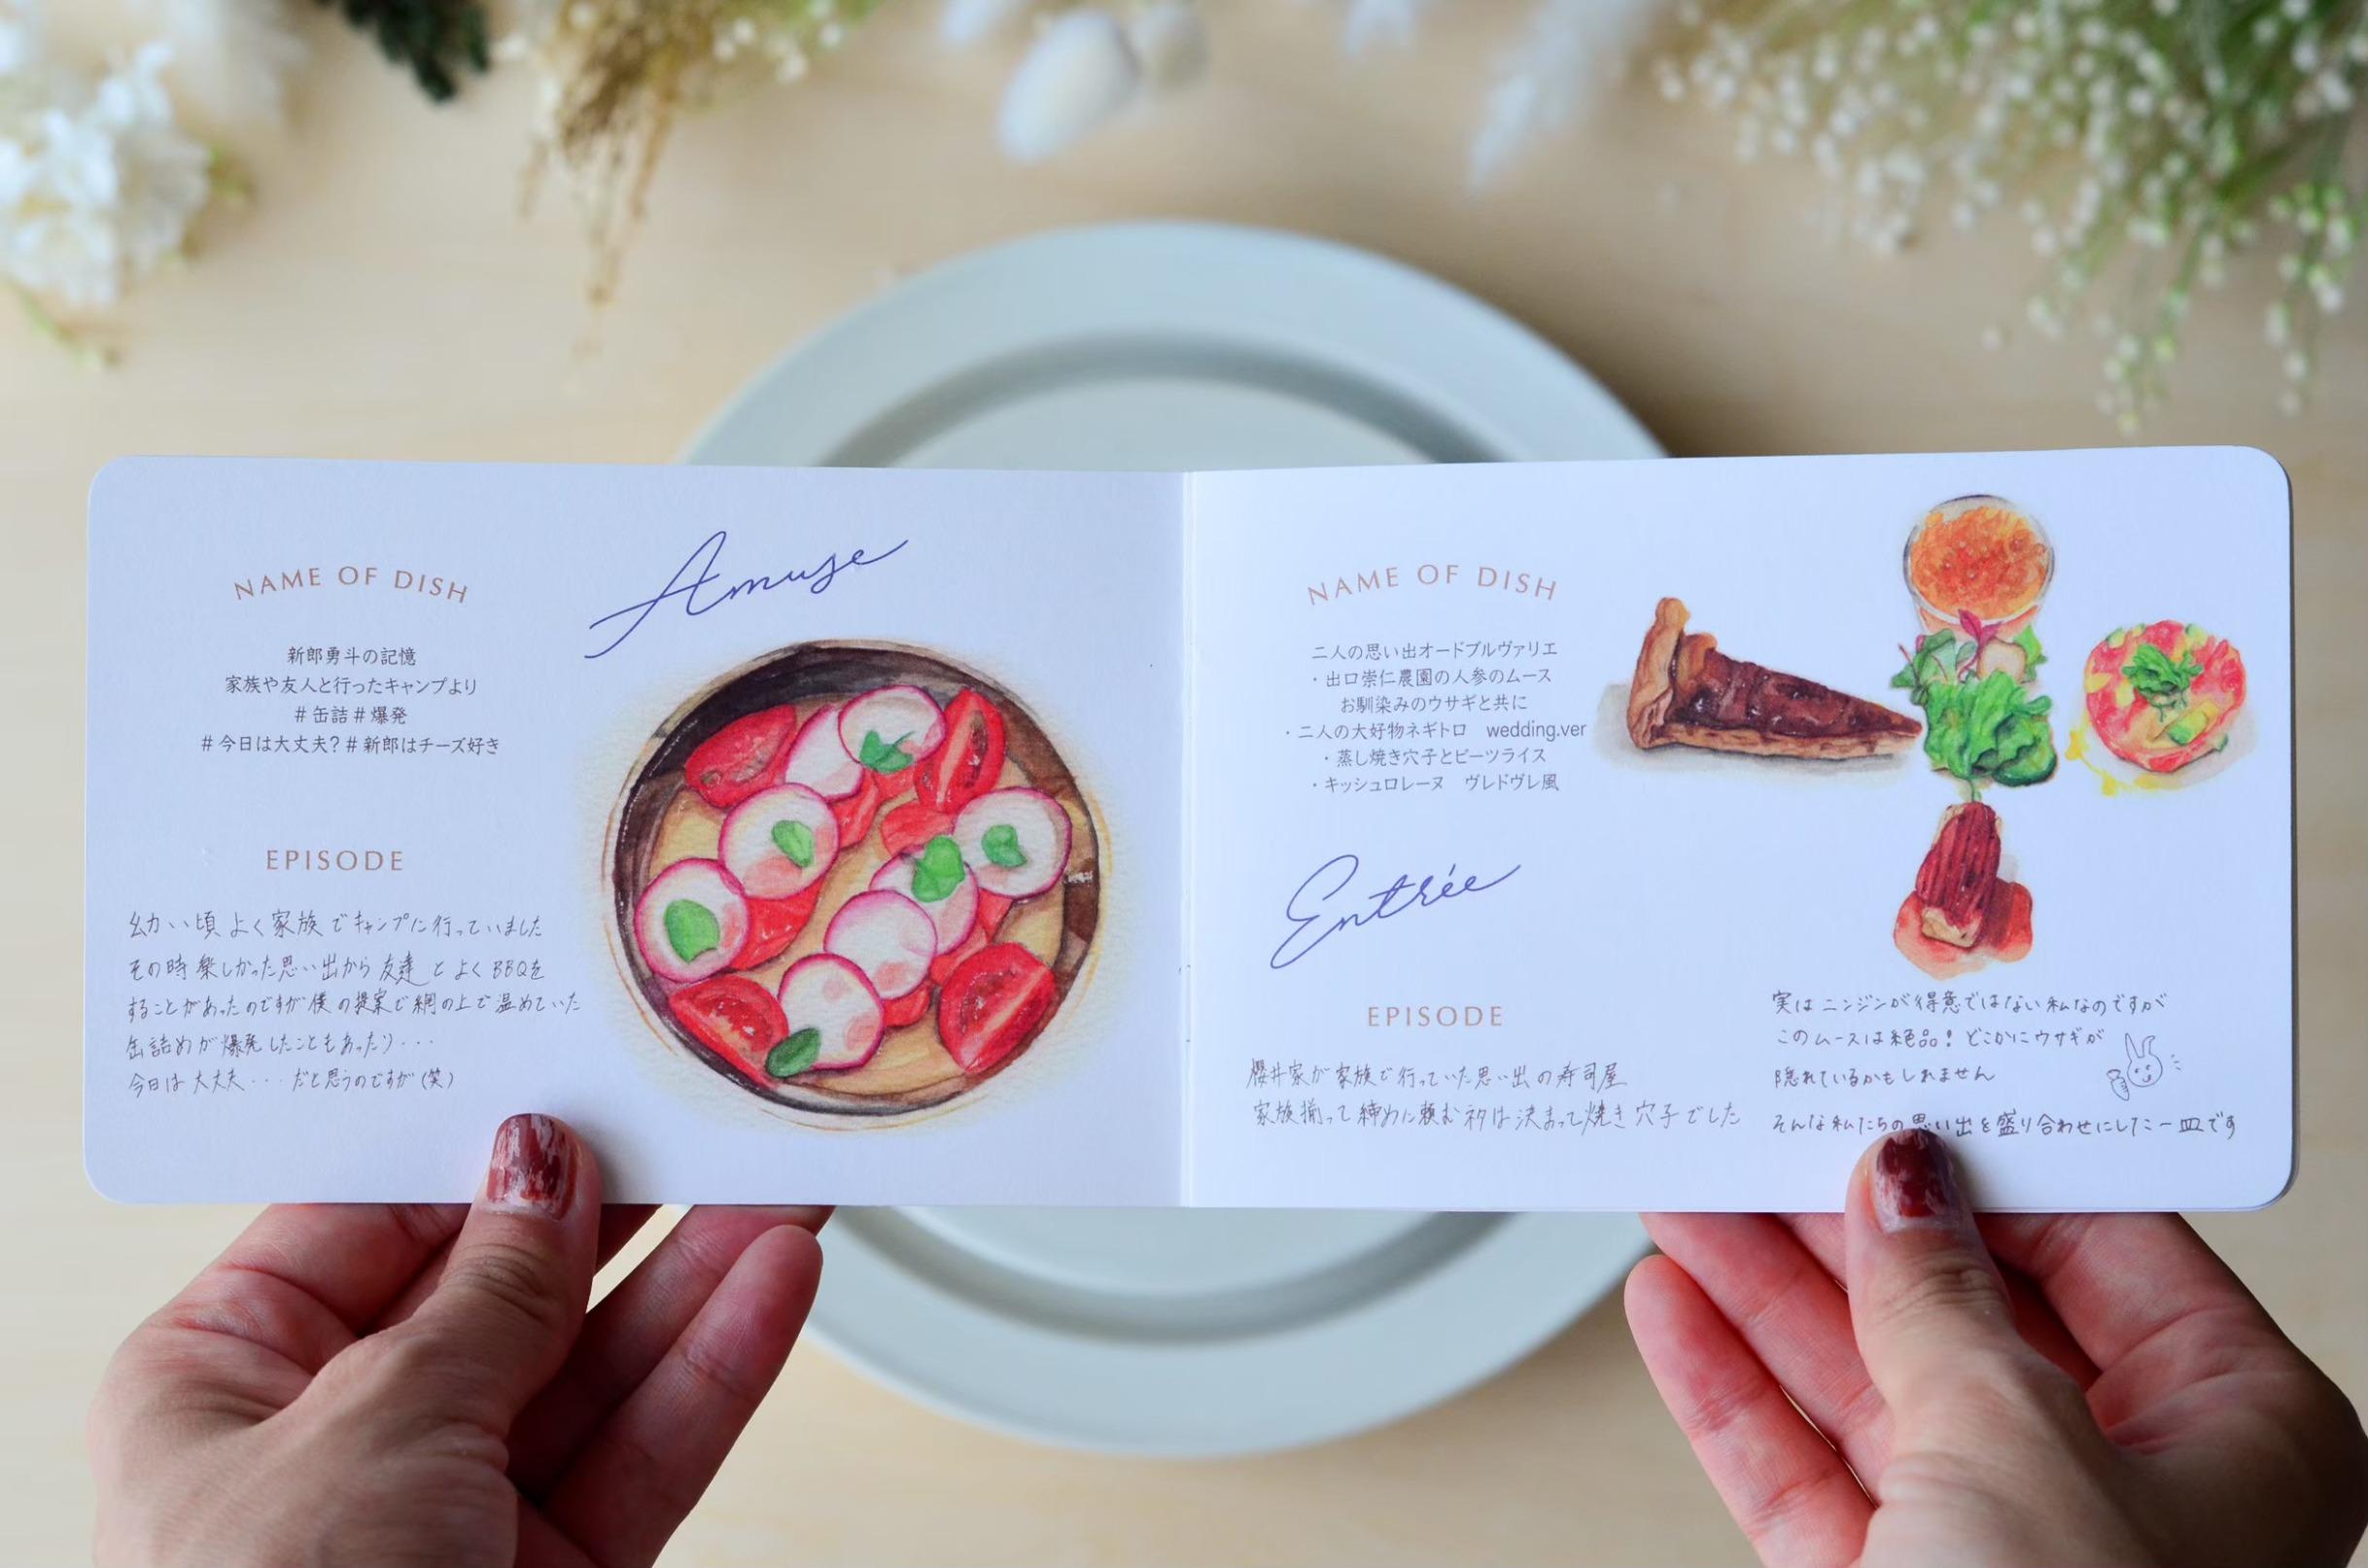 NAME OF DISH
Amuse
新郎勇斗の記憶
家族や友人と行ったキャンプより
#缶詰#爆発
#今日は大丈夫?#新郎はチーズ好き
EPISODE
幼い頃よく家族でキャンプに行っていました
その時楽しかった思い出から友達とよくBBQを
することがあったのですが僕の提案で網の上で温めていた
缶詰めが爆発したこともあったり・・・
今日は大丈夫・・・だと思うのですが(笑)
NAME OF DISH
二人の思い出オードブルヴァリエ
・出口崇仁農園の人参のムース
お馴染みのウサギと共に
・二人の大好物ネギトロ wedding.ver
・蒸し焼き穴子とビーツライス
・キッシュロレーヌ ヴレドヴレ風
Entrée
EPISODE
櫻井家が家族で行っていた思い出の寿司屋
家族揃って締めに頼むネタは決まって焼き穴子でした
実はニンジンが得意ではない私なのですが
このムースは絶品!どこかにウサギが
隠れているかもしれません
そんな私たちの思い出を盛り合わせにした一皿です